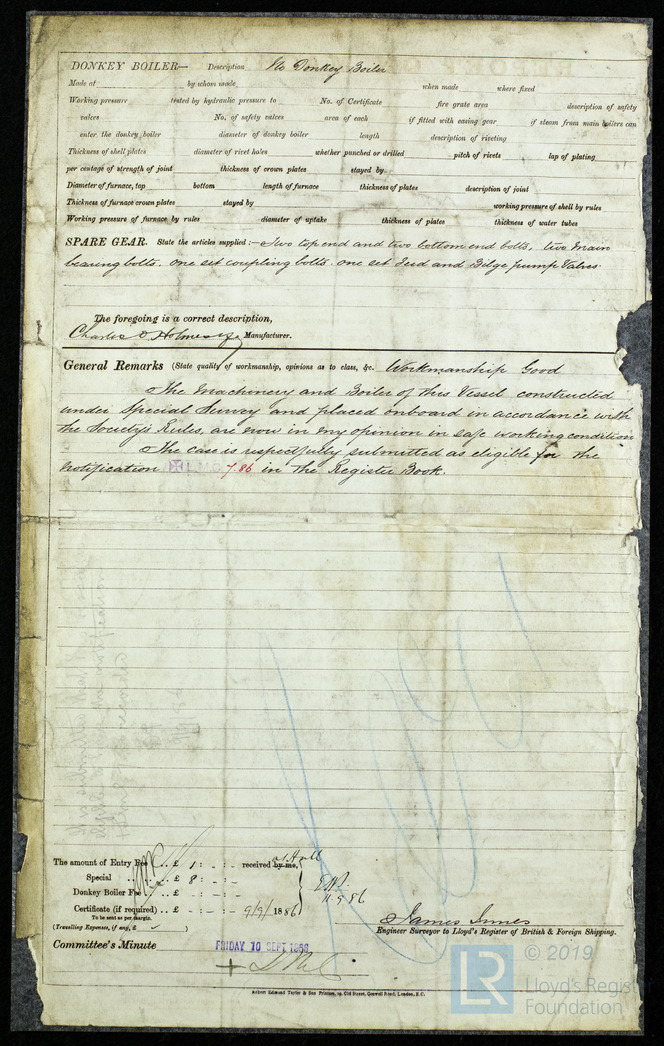 DONKEY BOILER— Description No Donkey Boiler
Made at by whom made when made where fixed
Working pressure tested by hydraulic pressure to No. of Certificate fire grate area description of safety
valves No. of safety valves area of each if fitted with easing gear if steam from main boilers can
enter the donkey boiler diameter of donkey boiler length description of riveting
Thickness of shell plates diameter of rivet holes whether punched or drilled pitch of rivets lap of plating
per centage of strength of joint thickness of crown plates stayed by
Diameter of furnace, top bottom length of furnace thickness of plates description of joint
Thickness of furnace crown plates stayed by working pressure of shell by rules
Working pressure of furnace by rules diameter of uptake thickness of plates thickness of water tubes
SPARE GEAR. State the articles supplied:— Two top end and two bottom end bolts, two main
bearing bolts. one set coupling bolts. one set Feed and Bilge pump Valves.
The foregoing is a correct description,
Charles D Holmes & Co Manufacturer.
General Remarks (State quality of workmanship, opinions as to class, &c. Workmanship Good
The Machinery and Boiler of this Vessel constructed
under Special Survey and placed onboard in accordance with
the Society's Rules, are now in my opinion in safe working condition
The case is respectfully submitted as eligible for the
notification L.M.C. 7.86 in the Register Book.
The amount of Entry Fee .. £ 1 : - : - received by me,
at Hull
Special .. £ 8 : - : -
Donkey Boiler Fee .. £ - : - : -
11.9.86
Certificate (if required) .. £ - : - : - 9/9/1886
To be sent as per margin.
(Travelling Expenses, if any, £ )
James Innes
Engineer Surveyor to Lloyd's Register of British & Foreign Shipping.
Committee's Minute FRIDAY 10 SEPT 1886
+ LMC
Robert Edmund Taylor & Son Printers, 19, Old Street, Goswell Road, London, E.C.
LR
© 2019
Lloyd's Register
Foundation